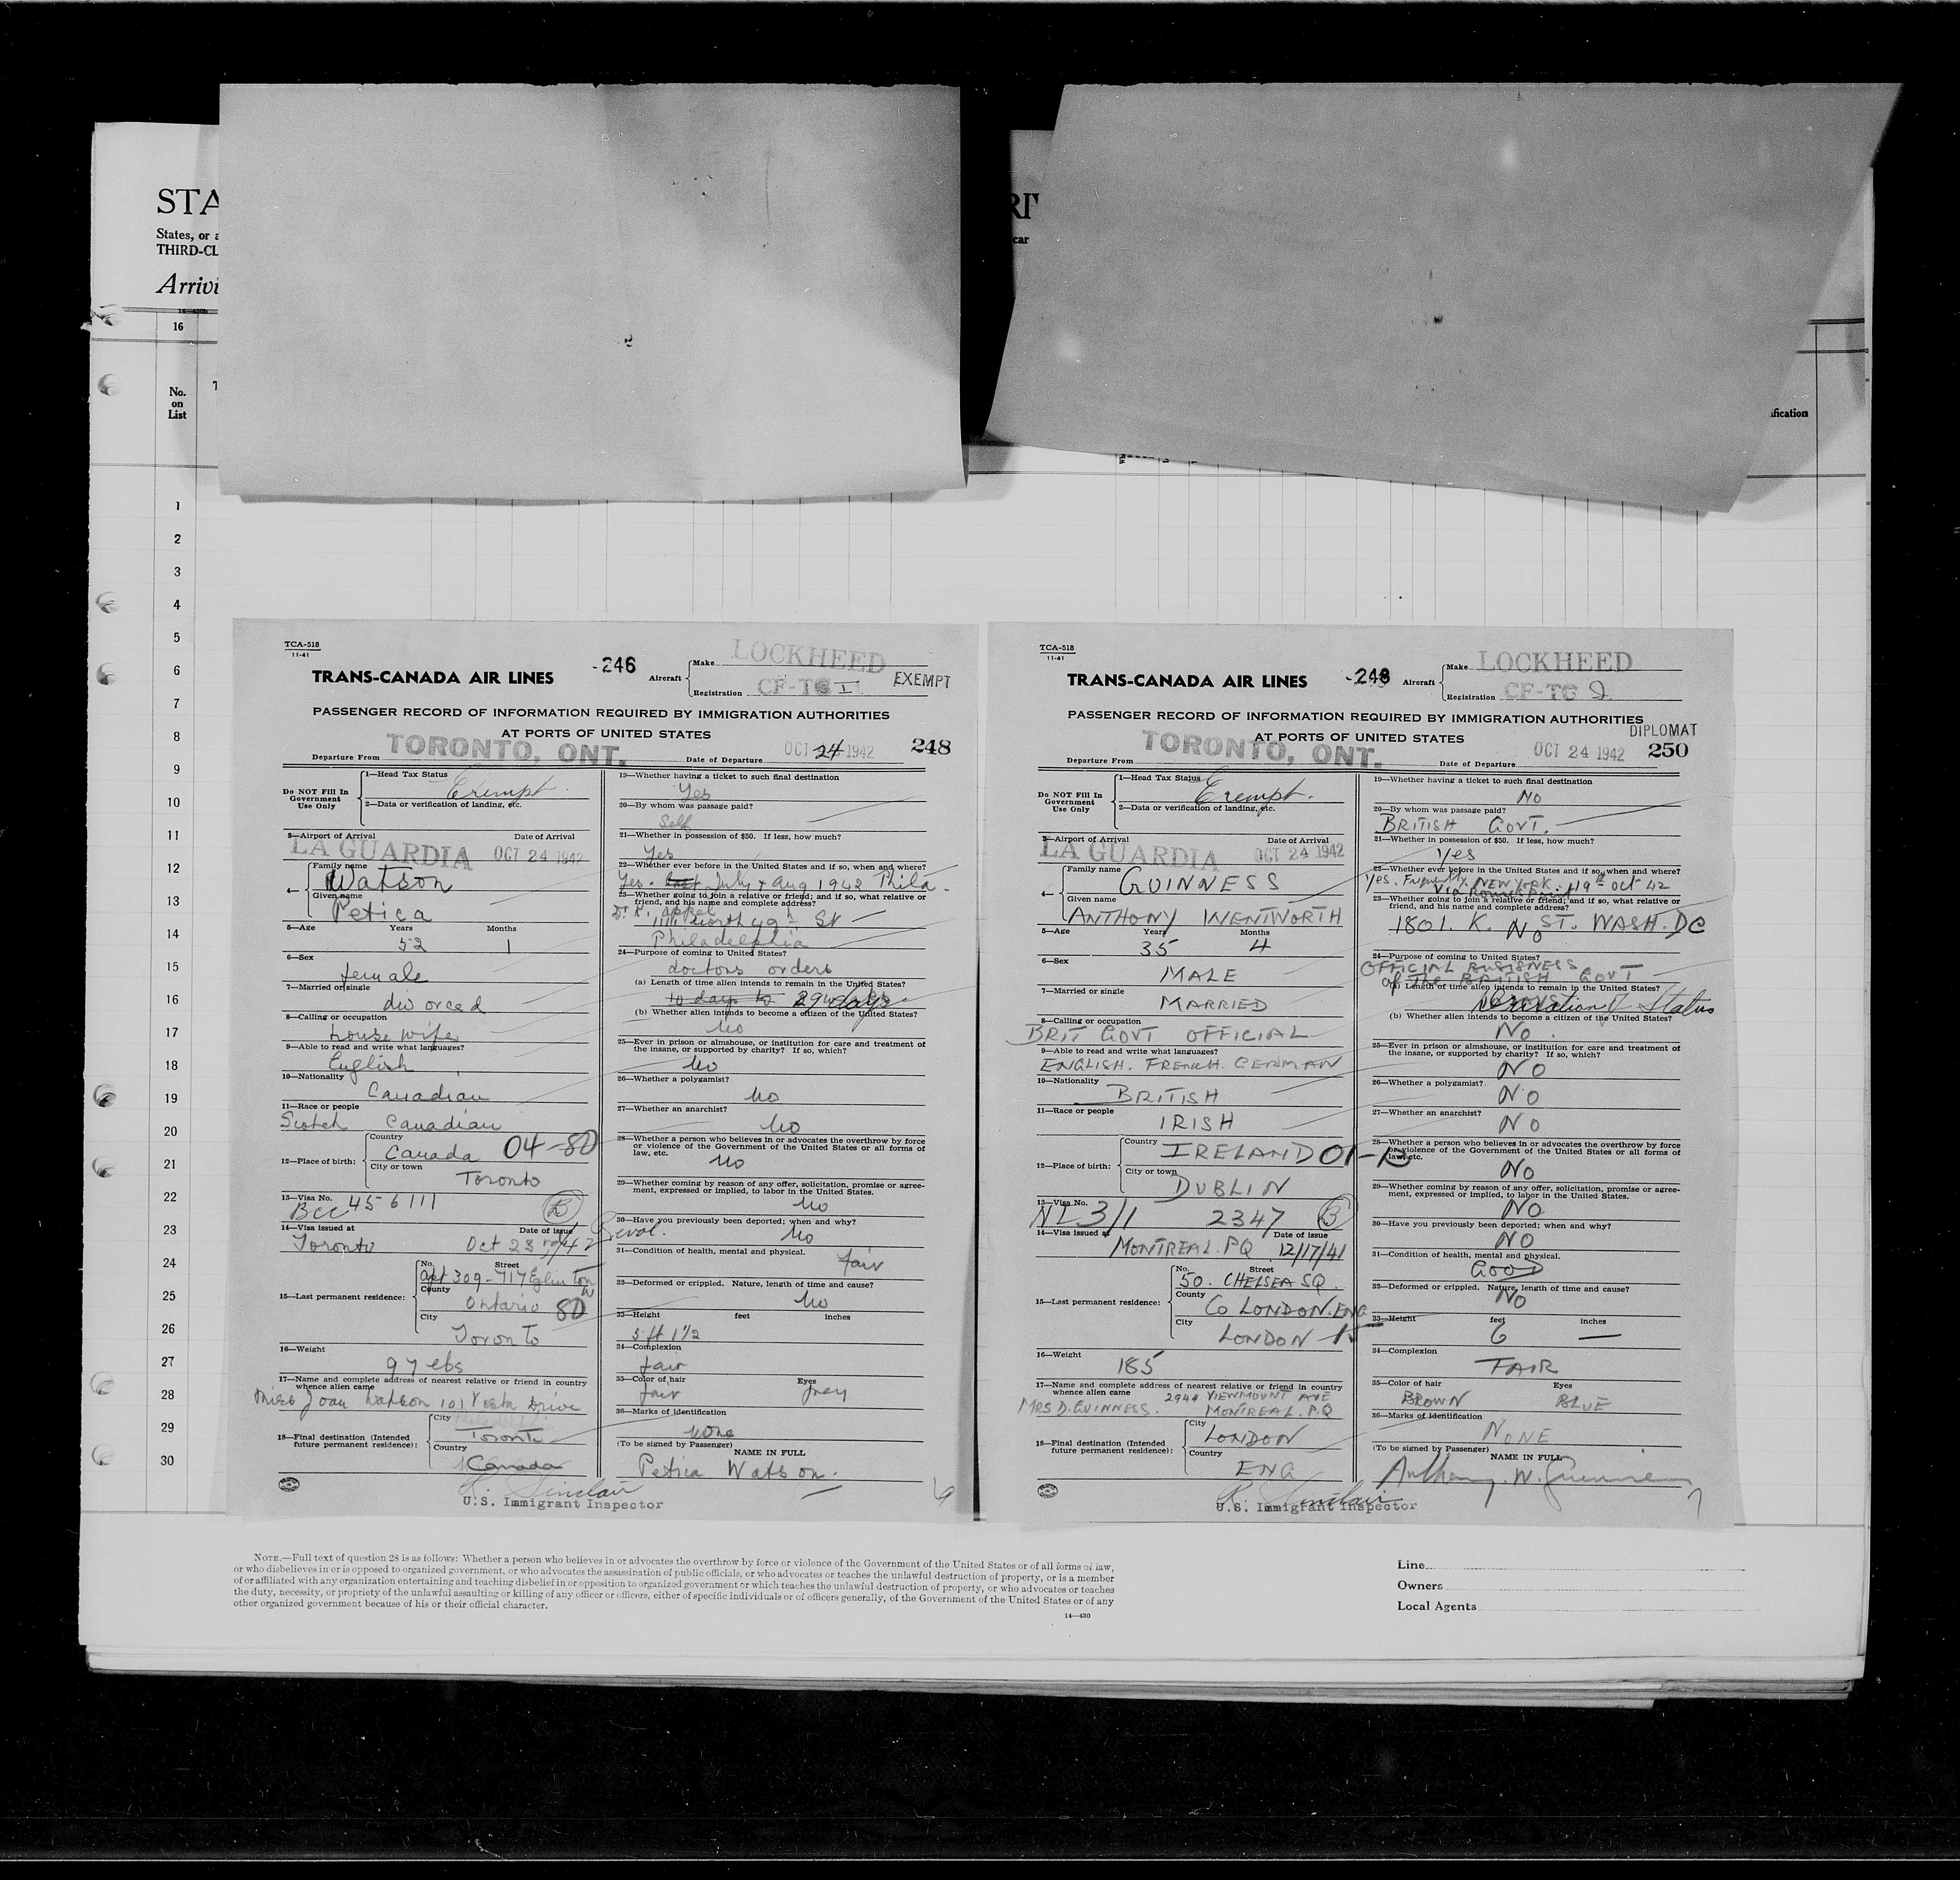 STA
States, or a
THIRD-CL
Arrivi
RI
car
16
No.
on
List
ification
1
2
3
4
5
6
7
8
9
10
11
12
13
14
15
16
17
18
19
20
21
22
23
24
25
26
27
28
29
30
TCA-518
11-41
TRANS-CANADA AIR LINES
-246
Aircraft
Make LOCKHEED
Registration CF-TC I
EXEMPT
PASSENGER RECORD OF INFORMATION REQUIRED BY IMMIGRATION AUTHORITIES
AT PORTS OF UNITED STATES
Departure From TORONTO, ONT.
Date of Departure OCT 24 1942
248
Do NOT Fill In
Government
Use Only
1—Head Tax Status Exempt.
2—Data or verification of landing, etc.
3—Airport of Arrival Date of Arrival
LA GUARDIA OCT 24 1942
4— Family name
Watson
Given name
Petica
5—Age Years Months
52 1
6—Sex
female
7—Married or single
divorced
8—Calling or occupation
housewife
9—Able to read and write what languages?
English
10—Nationality
Canadian
11—Race or people
Scotch Canadian
12—Place of birth:
Country
Canada 04-80
City or town
Toronto
13—Visa No. 456111
Bcc B
14—Visa issued at Date of issue
Toronto Oct 23rd/42
15—Last permanent residence:
No. Street
Apt 309-717 Eglinton W
County
Ontario 80
City
Toronto
16—Weight
97 lbs
17—Name and complete address of nearest relative or friend in country
whence alien came
Miss Joan Watson 101 Vesta Drive
18—Final destination (Intended
future permanent residence):
City
Toronto
Country
Canada
R. Sinclair
U.S. Immigrant Inspector
19—Whether having a ticket to such final destination
Yes
20—By whom was passage paid?
Self
21—Whether in possession of $50. If less, how much?
Yes
22—Whether ever before in the United States and if so, when and where?
Yes. July & Aug 1942 Phila.
23—Whether going to join a relative or friend; and if so, what relative or
friend, and his name and complete address?
Dr. K. Appel
1111 North 49th St
Philadelphia
24—Purpose of coming to United States?
doctors orders
(a) Length of time alien intends to remain in the United States?
10 days to 29 days
(b) Whether alien intends to become a citizen of the United States?
No
25—Ever in prison or almshouse, or institution for care and treatment of
the insane, or supported by charity? If so, which?
No
26—Whether a polygamist?
No
27—Whether an anarchist?
No
28—Whether a person who believes in or advocates the overthrow by force
or violence of the Government of the United States or all forms of
law, etc.
No
29—Whether coming by reason of any offer, solicitation, promise or agree-
ment, expressed or implied, to labor in the United States.
No
30—Have you previously been deported; when and why?
No
31—Condition of health, mental and physical.
fair
32—Deformed or crippled. Nature, length of time and cause?
No
33—Height feet inches
5 ft 1 1/2
34—Complexion
fair
35—Color of hair Eyes
fair grey
36—Marks of identification
none
(To be signed by Passenger)
NAME IN FULL
Petica Watson.
TCA-518
11-41
TRANS-CANADA AIR LINES
-248
Aircraft
Make LOCKHEED
Registration CF-TC
PASSENGER RECORD OF INFORMATION REQUIRED BY IMMIGRATION AUTHORITIES
AT PORTS OF UNITED STATES
DIPLOMAT
Departure From TORONTO, ONT.
Date of Departure OCT 24 1942
250
Do NOT Fill In
Government
Use Only
1—Head Tax Status Exempt.
2—Data or verification of landing, etc.
3—Airport of Arrival Date of Arrival
LA GUARDIA OCT 24 1942
4— Family name
GUINNESS
Given name
ANTHONY WENTWORTH
5—Age Years Months
35 4
6—Sex
MALE
7—Married or single
MARRIED
8—Calling or occupation
BRIT GOVT OFFICIAL
9—Able to read and write what languages?
ENGLISH. FRENCH. GERMAN
10—Nationality
BRITISH
11—Race or people
IRISH
12—Place of birth:
Country
IRELAND
City or town
DUBLIN
13—Visa No.
NL 3/1 2347 B
14—Visa issued at Date of issue
MONTREAL. PQ 12/17/41
15—Last permanent residence:
No. Street
50. CHELSEA SQ.
County
Co LONDON. ENG
City
LONDON
16—Weight
185
17—Name and complete address of nearest relative or friend in country
whence alien came 2944 VIEWMOUNT AVE
MRS D. GUINNESS. MONTREAL. P.Q
18—Final destination (Intended
future permanent residence):
City
LONDON
Country
ENG
R. Sinclair
U.S. Immigrant Inspector
19—Whether having a ticket to such final destination
NO
20—By whom was passage paid?
BRITISH GOVT.
21—Whether in possession of $50. If less, how much?
Yes
22—Whether ever before in the United States and if so, when and where?
Yes. Frequently. NEW YORK. 19th Oct 42
23—Whether going to join a relative or friend; and if so, what relative or
friend, and his name and complete address?
1801. K. ST. WASH. DC
No
24—Purpose of coming to United States?
OFFICIAL BUSISNESS
of the BRITISH GOVT
(a) Length of time alien intends to remain in the United States?
Duration of Status
(b) Whether alien intends to become a citizen of the United States?
No.
25—Ever in prison or almshouse, or institution for care and treatment of
the insane, or supported by charity? If so, which?
NO
26—Whether a polygamist?
NO
27—Whether an anarchist?
NO
28—Whether a person who believes in or advocates the overthrow by force
or violence of the Government of the United States or all forms of
law, etc.
NO
29—Whether coming by reason of any offer, solicitation, promise or agree-
ment, expressed or implied, to labor in the United States.
NO.
30—Have you previously been deported; when and why?
NO
31—Condition of health, mental and physical.
GOOD
32—Deformed or crippled. Nature, length of time and cause?
NO
33—Height feet inches
6 —
34—Complexion
FAIR
35—Color of hair Eyes
BROWN BLUE
36—Marks of identification
NONE
(To be signed by Passenger)
NAME IN FULL
Anthony. W. Guinness
NOTE.—Full text of question 28 is as follows: Whether a person who believes in or advocates the overthrow by force or violence of the Government of the United States or of all forms of law,
or who disbelieves in or is opposed to organized government, or who advocates the assassination of public officials, or who advocates or teaches the unlawful destruction of property, or is a member
of or affiliated with any organization entertaining and teaching disbelief in or opposition to organized government or which teaches the unlawful destruction of property, or who advocates or teaches
the duty, necessity, or propriety of the unlawful assaulting or killing of any officer or officers, either of specific individuals or of officers generally, of the Government of the United States or of any
other organized government because of his or their official character.
14—430
Line
Owners
Local Agents